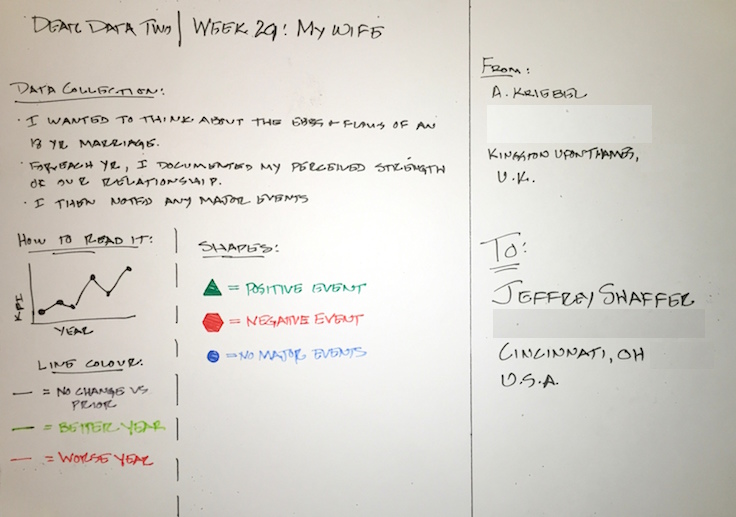 DEAR DATA TWO | WEEK 29: MY WIFE
DATA COLLECTION:
· I WANTED TO THINK ABOUT THE EBBS + FLOWS OF AN
13 YR MARRIAGE.
· FOR EACH YR, I DOCUMENTED MY PERCEIVED STRENGTH
OF OUR RELATIONSHIP.
· I THEN NOTED ANY MAJOR EVENTS
HOW TO READ IT:
KPI
YEAR
LINE COLOUR:
— = NO CHANGE VS
PRIOR
— = BETTER YEAR
— = WORSE YEAR
SHAPES:
= POSITIVE EVENT
= NEGATIVE EVENT
= NO MAJOR EVENTS
FROM:
A. KRIEBEL
KINGSTON UPON THAMES,
U.K.
TO:
JEFFREY SHAFFER
CINCINNATI, OH
U.S.A.